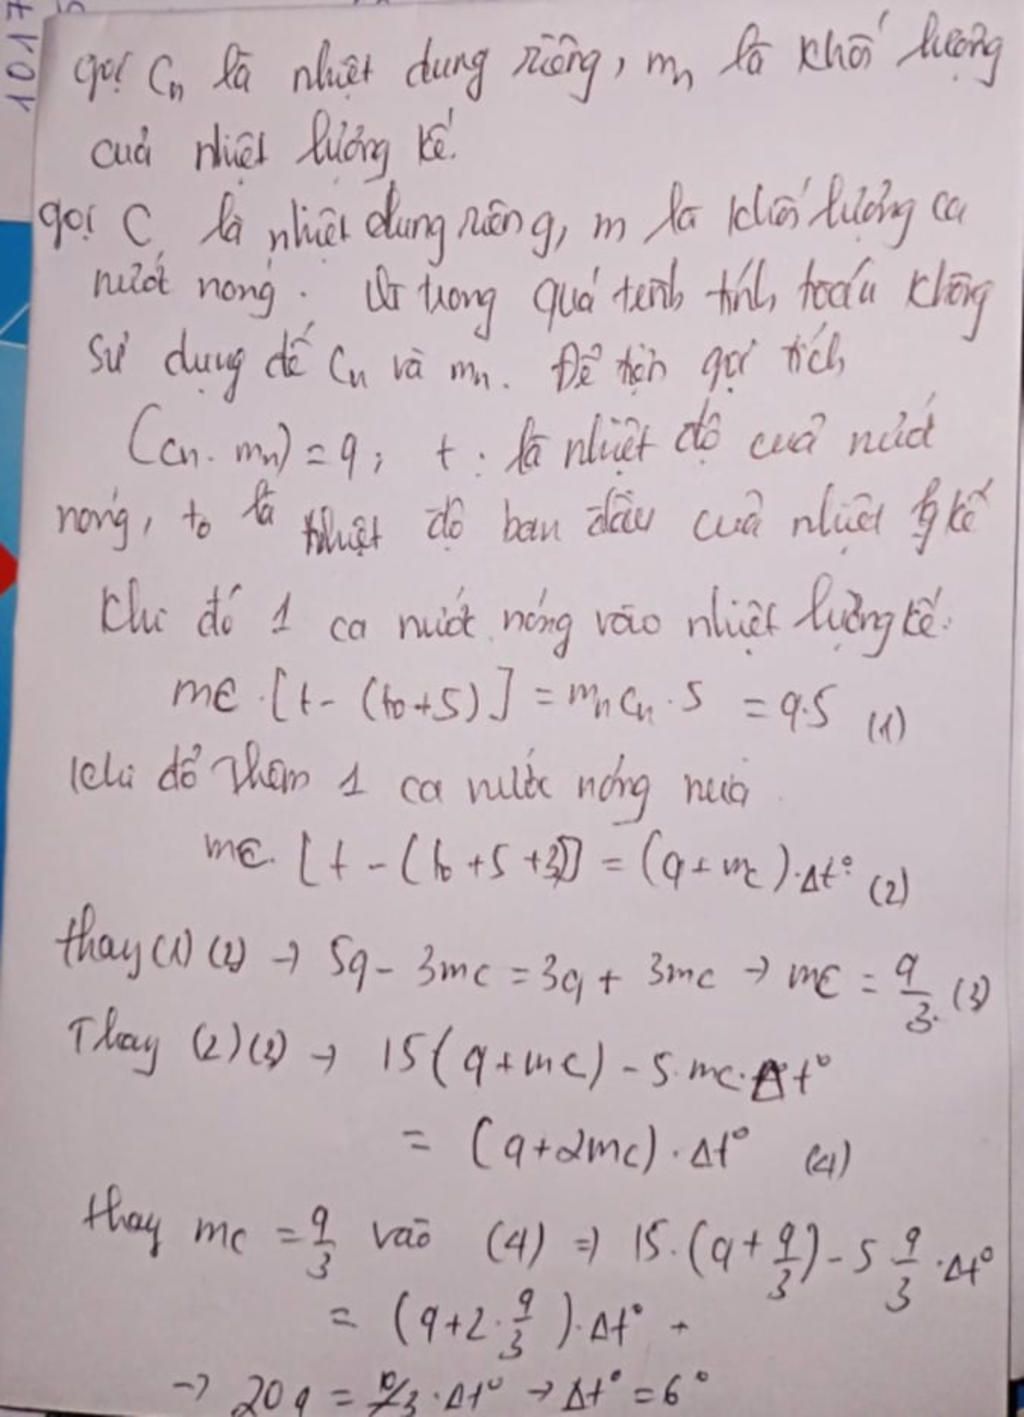 1017
gọi Cn là nhiệt dung riêng, mn là khối lượng
của nhiệt lượng kế.
gọi C là nhiệt dung riêng, m là khối lượng ca
nước nóng. Vì trong quá trình tính toán không
sử dụng đế Cn và mn. Để tiện gọi tích
(cn. mn) = q; t: là nhiệt độ của nước
nóng, to là nhiệt độ ban đầu của nhiệt lg kế
Khi đổ 1 ca nước nóng vào nhiệt lượng kế.
mc.[t - (to+5)] = mn cn . 5 = q.5 (1)
Khi đổ thêm 1 ca nước nóng nữa
mc. [t - (to +5 +3)] = (q + mc).Δt° (2)
thay (1) (2) → 5q - 3mc = 3q + 3mc → mc = q/3. (3)
Thay (2) (3) → 15(q+mc) - 5.mc.Δt°
= (q+2mc).Δt° (4)
thay mc = q/3 vào (4) ⇒ 15.(q + q/3) - 5 q/3 .Δt°
= (q+2.q/3).Δt°
→ 20q = 10/3.Δt° → Δt° = 6°